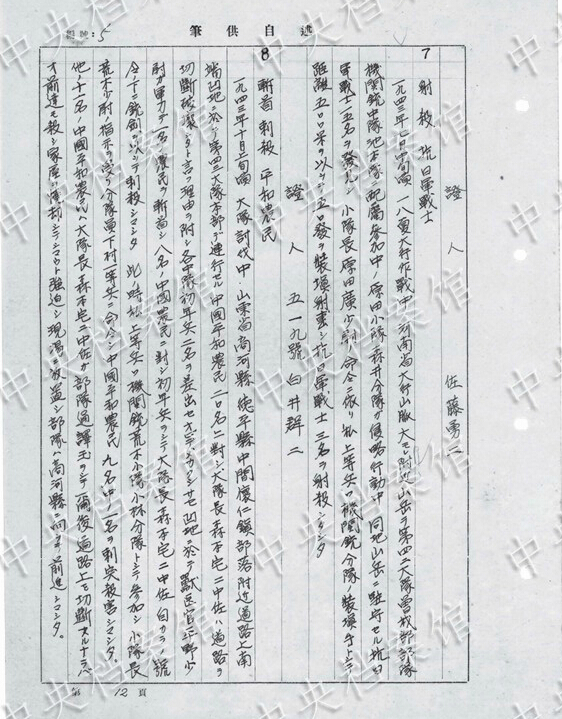 述自供筆
編號：5
證人 佐藤勇二
7 射殺抗日軍戰士
一九四三年七月中旬頃、一八夏太行作戰中、河南省太行山脈大モレ附近山岳ヲ第四二大隊曽我部部隊
機関銃中隊池本隊ニ配属参加中ノ原田小隊森井分隊ガ侵略行動中、同地山岳ニ駐守セル抗日
軍戰士一五名ヲ發見シ、小隊長原田廣少尉ノ命令ニ依リ私上等兵ハ機関銃分隊ノ装填手トシテ
距離五〇〇米ヲ以ッテ五〇發ヲ装填射撃シ抗日軍戰士三名ヲ射殺シマシタ
證人 五一九號 白井群二
8 斬首刺殺平和農民
一九四三年十月上旬頃、大隊討伐中、山東省商河縣、德平縣中間懷仁鎮部落附近道路上南
端凹地ニ於テ第四二大隊本部デ連行セル中國平和農民二〇名ニ對シ大隊長森本宅二中佐ハ道路ヲ
切斷破潰シタト言フ理由ヲ附シ各中隊初年兵二名ヲ差出セ
尉ガ軍刀デ一名農民ヲ斬首シ八名ノ中國農民ニ對シ初年兵ヲシテ大隊長森本宅二中佐自カラノ號
令ノ下ニ銃剣ヲ以ッテ刺殺シマシタ 此ノ時私上等兵ハ機関銃荒木小隊小林分隊トシテ参加シ小隊長
荒木少尉指示ヲ受ケ分隊員下村一等兵ニ命令シ中國平和農民九名中一名ヲ刺突殺害シマシタ。
他ノ十一名ノ中國平和農民ハ大隊長森本宅二中佐ガ部隊通譯王ヲシテ「爾後道路上ヲ切斷スルナラバ
オ前達モ殺シ家屋ハ燒却シテシマウト強迫シ現場ニ放置シ部隊ハ商河縣ニ向ッテ前進シマシタ。
第12頁
中央档案馆